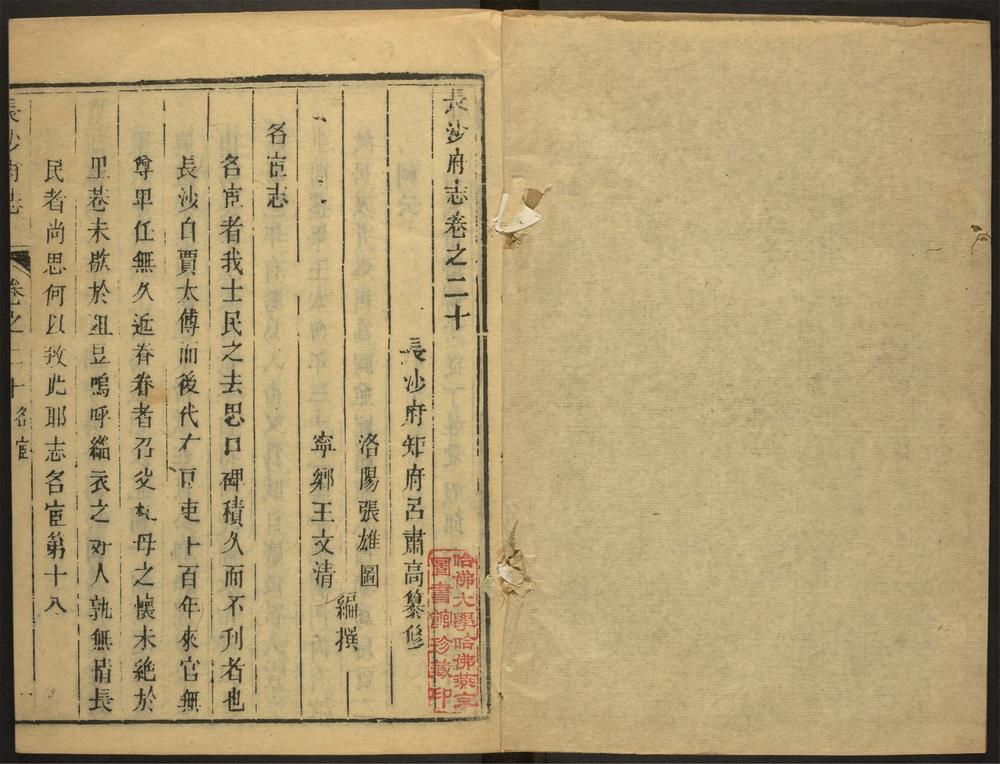 長沙府志卷之二十
長沙府知府呂肅高纂修
洛陽張雄圖
寧鄉王文清
編撰
名宦志
名宦者我士民之去思口碑積久而不刊者也
長沙自賈太傅而後代有 吏十百年來官無
尊卑任無久近眷眷者召父 母之懷未絶於
里巷未歇於俎豆嗚呼緇衣之好人孰無情長
民者尚思何以致此耶志名宦第十八
長沙府志
卷之二十 名宦
一
哈佛大學哈佛燕京
圖書館珍藏印